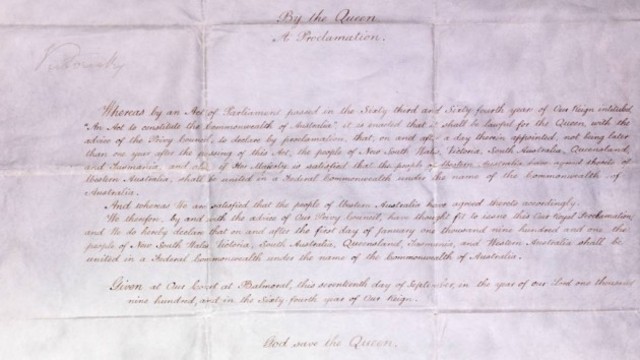 By the Queen
A Proclamation.
Whereas by an Act of Parliament passed in the Sixty third and Sixty-fourth year of Our Reign intituled
"An Act to constitute the Commonwealth of Australia" it is enacted that it shall be lawful for the Queen with the
advice of the Privy Council, to declare by proclamation, that, on and after a day therein appointed, not being later
than one year after the passing of this Act, the people of New South Wales, Victoria, South Australia, Queensland,
and Tasmania, and also, if Her Majesty is satisfied that the people of Western Australia have agreed thereto, of
Western Australia, shall be united in a Federal Commonwealth under the name of the Commonwealth of
Australia.
And whereas We are satisfied that the people of Western Australia have agreed thereto accordingly.
We therefore, by and with the advice of Our Privy Council, have thought fit to issue this Our Royal Proclamation
and We do hereby declare that on and after the first day of January one thousand nine hundred and one, the
people of New South Wales, Victoria, South Australia, Queensland, Tasmania, and Western Australia shall be
united in a Federal Commonwealth under the name of the Commonwealth of Australia.
Given at Our Court at Balmoral, this seventeenth day of September, in the year of our Lord one thousand
nine hundred, and in the Sixty-fourth year of Our Reign.
God save the Queen.